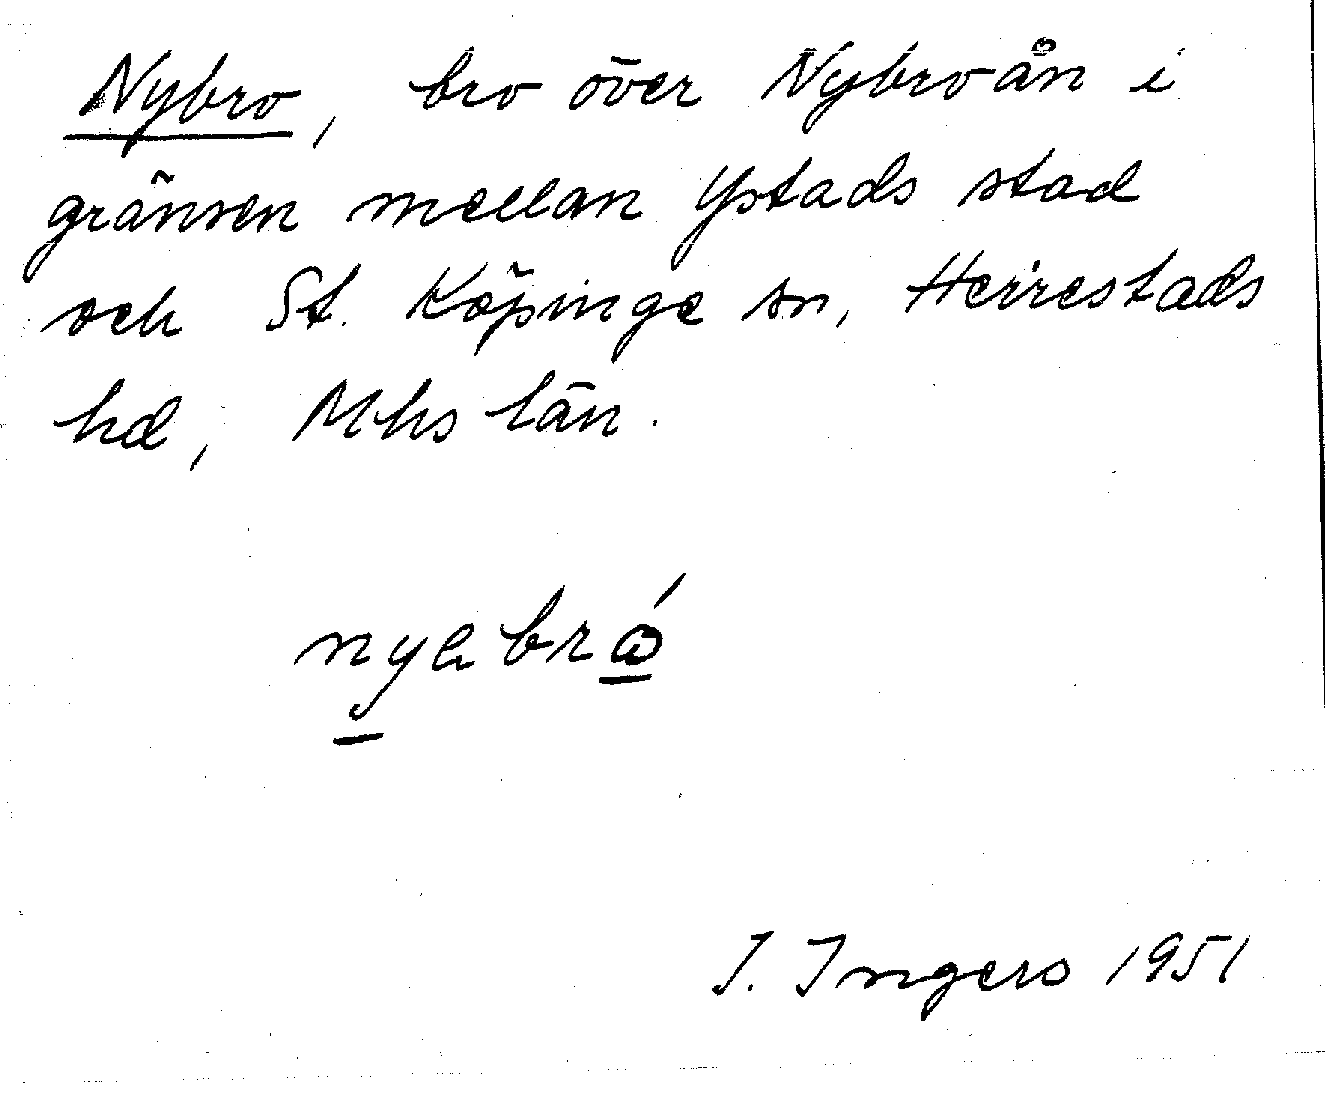 Nybro, bro över Nybroån i
gränsen mellan Ystads stad
och St. Köpinge sn, Herrestads
hd, Mhs län.
I. Ingers 1951